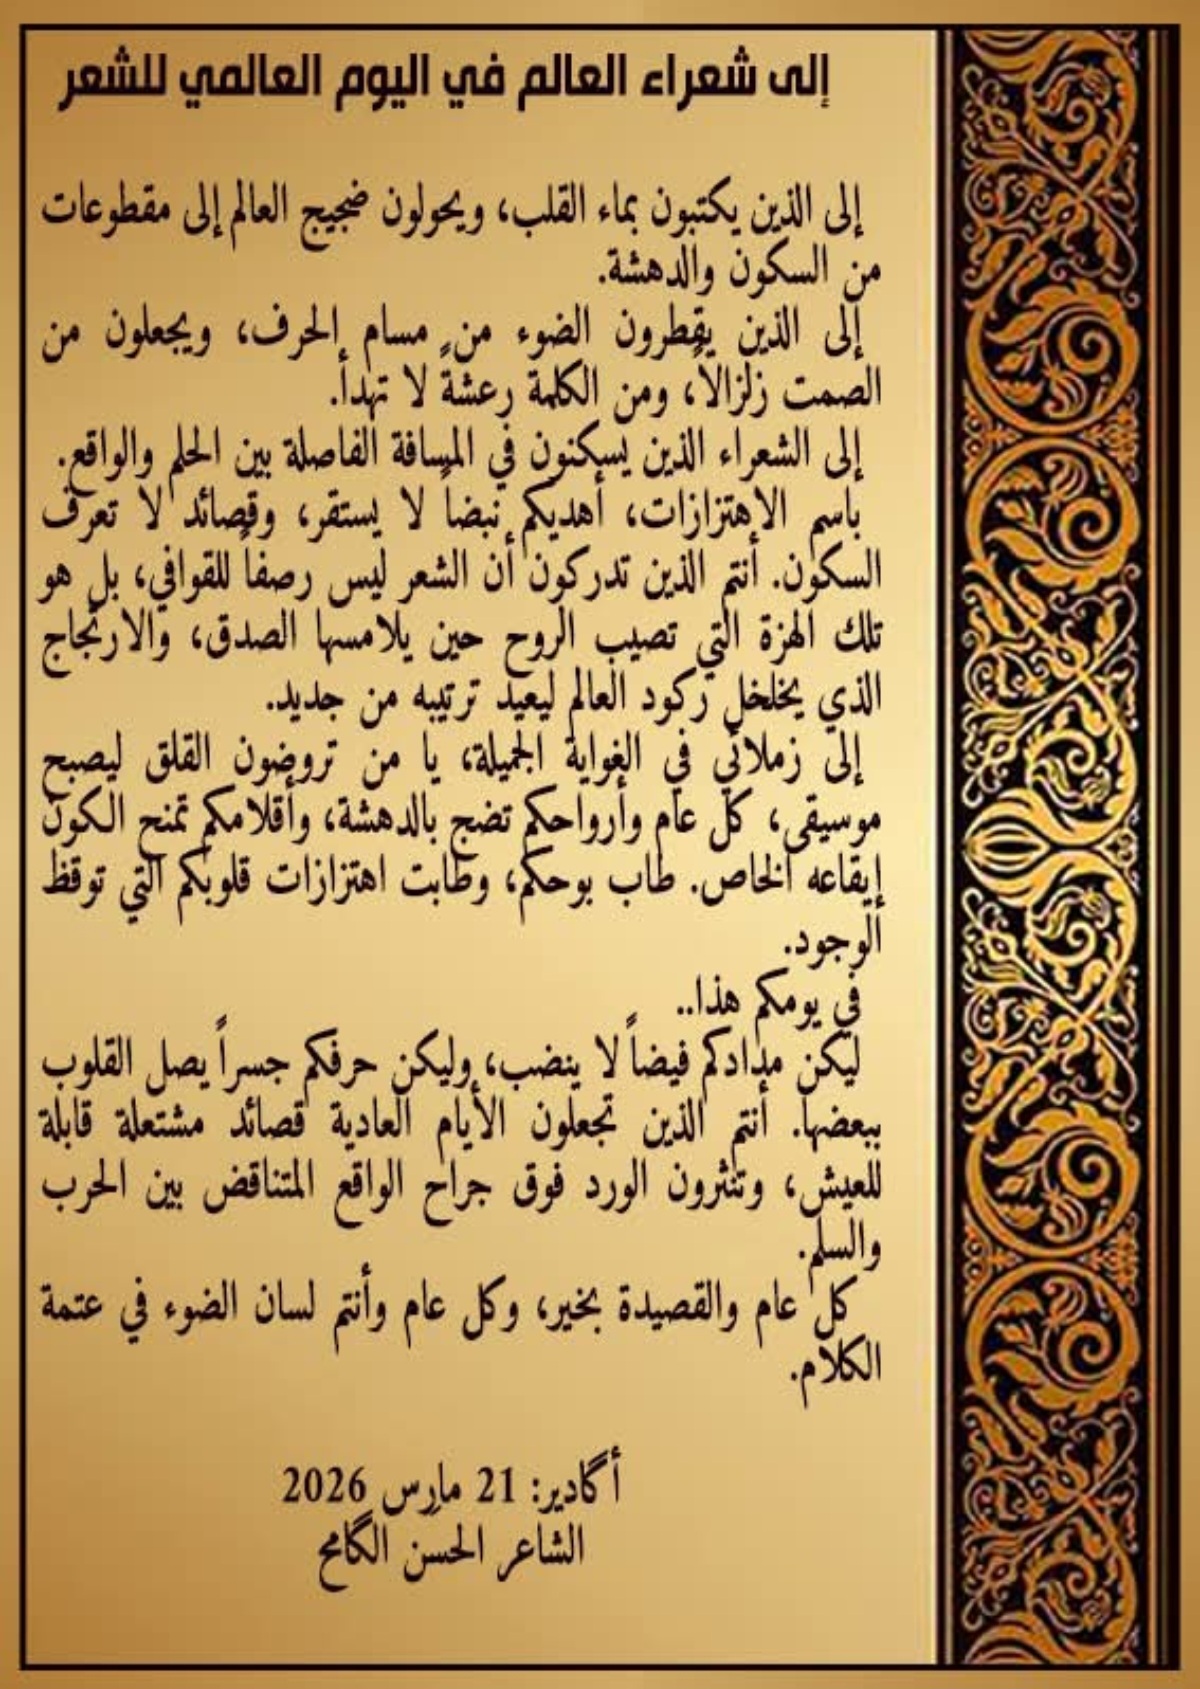 إلى شعراء العالم في اليوم العالمي للشعر
إلى الذين يكتبون بماء القلب، ويحولون ضجيج العالم إلى مقطوعات
من السكون والدهشة.
إلى الذين يقطرون الضوء من مسام الحرف، ويجعلون من
الصمت زلزالاً، ومن الكلمة رعشةً لا تهدأ.
إلى الشعراء الذين يسكنون في المسافة الفاصلة بين الحلم والواقع.
باسم الاهتزازات، أهديكم نبضاً لا يستقر، وقصائد لا تعرف
السكون. أنتم الذين تدركون أن الشعر ليس رصفاً للقوافي، بل هو
تلك الهزة التي تصيب الروح حين يلامسها الصدق، والارتجاج
الذي يخلخل ركود العالم ليعيد ترتيبه من جديد.
إلى زملائي في الغواية الجميلة، يا من تروضون القلق ليصبح
موسيقى، كل عام وأرواحكم تضج بالدهشة، وأقلامكم تمنح الكون
إيقاعه الخاص. طاب بوحكم، وطابت اهتزازات قلوبكم التي توقظ
الوجود.
في يومكم هذا..
ليكن مدادكم فيضاً لا ينضب، وليكن حرفكم جسراً يصل القلوب
ببعضها. أنتم الذين تجعلون الأيام العادية قصائد مشتعلة قابلة
للعيش، وتنثرون الورد فوق جراح الواقع المتناقض بين الحرب
والسلم.
كل عام والقصيدة بخير، وكل عام وأنتم لسان الضوء في عتمة
الكلام.
أگادير: 21 مارس 2026
الشاعر الحسن الگامح